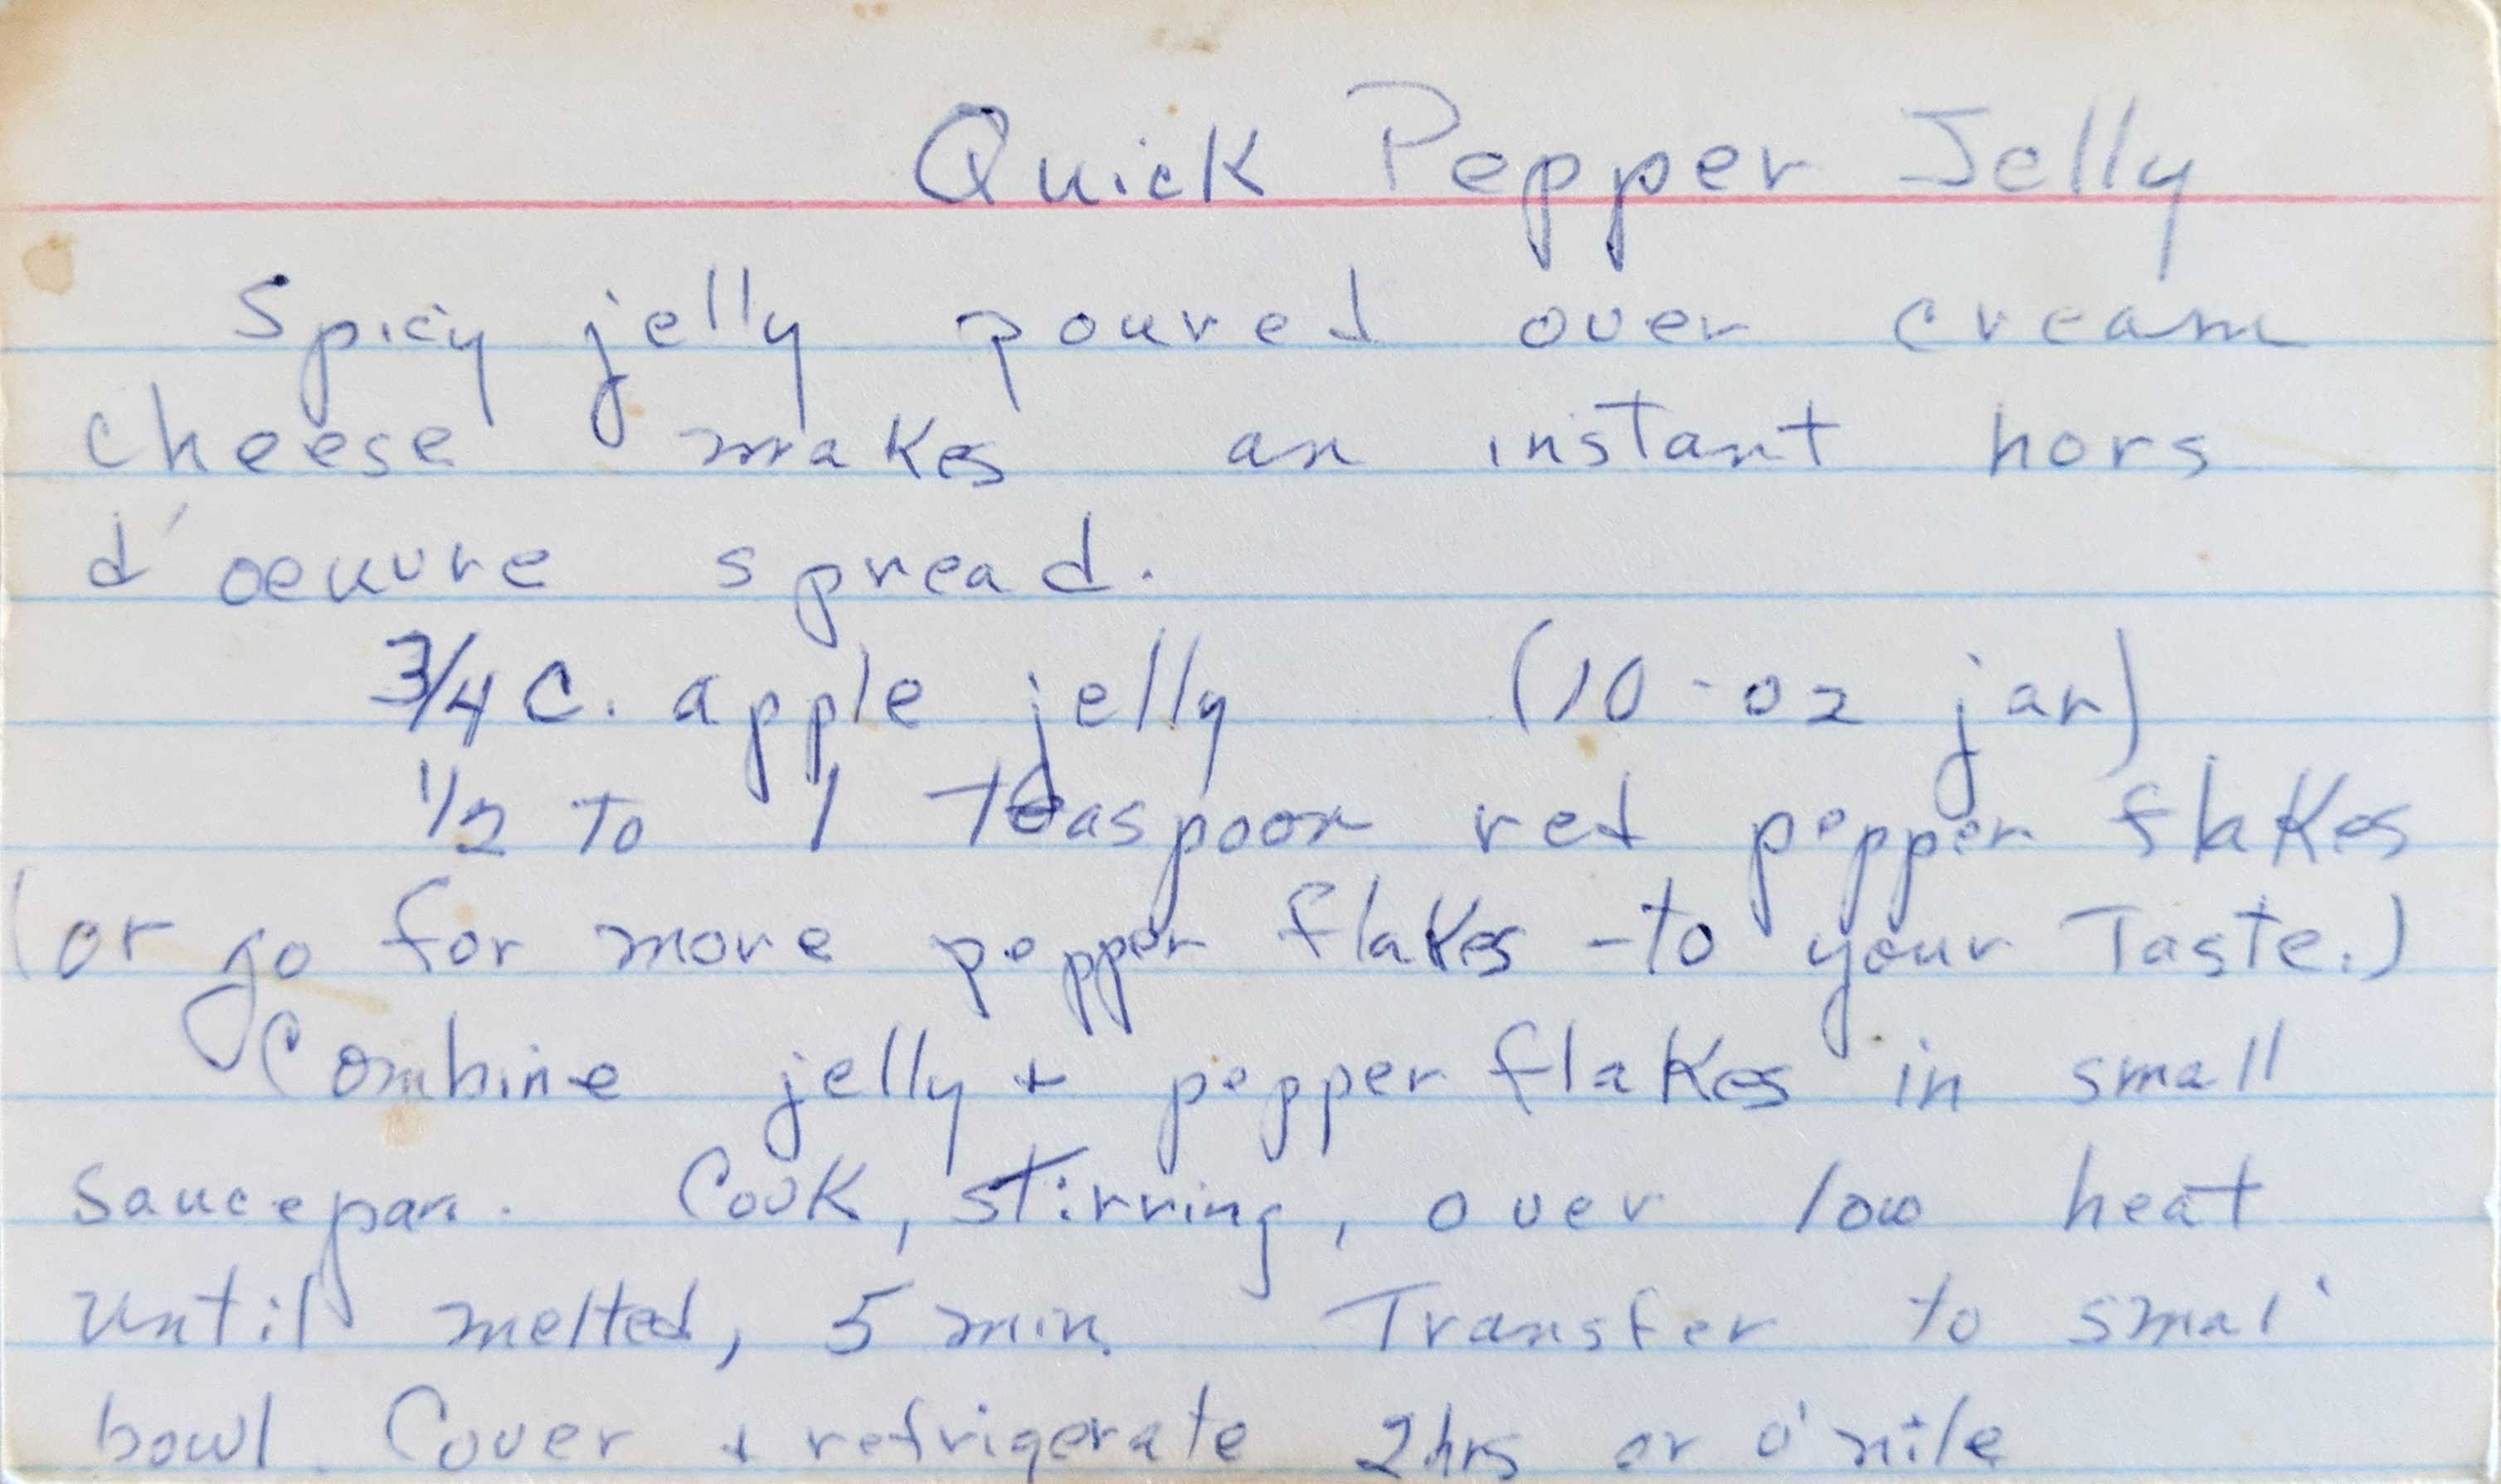 Quick Pepper Jelly
Spicy jelly poured over cream
cheese makes an instant hors
d'oeuvre spread.
3/4 C. apple jelly (10-oz jar)
1/2 to 1 teaspoon red pepper flakes
(or go for more pepper flakes - to your Taste.)
Combine jelly + pepper flakes in small
saucepan. Cook, stirring, over low heat
until melted, 5 min. Transfer to small
bowl. Cover + refrigerate 2hrs or o'nite